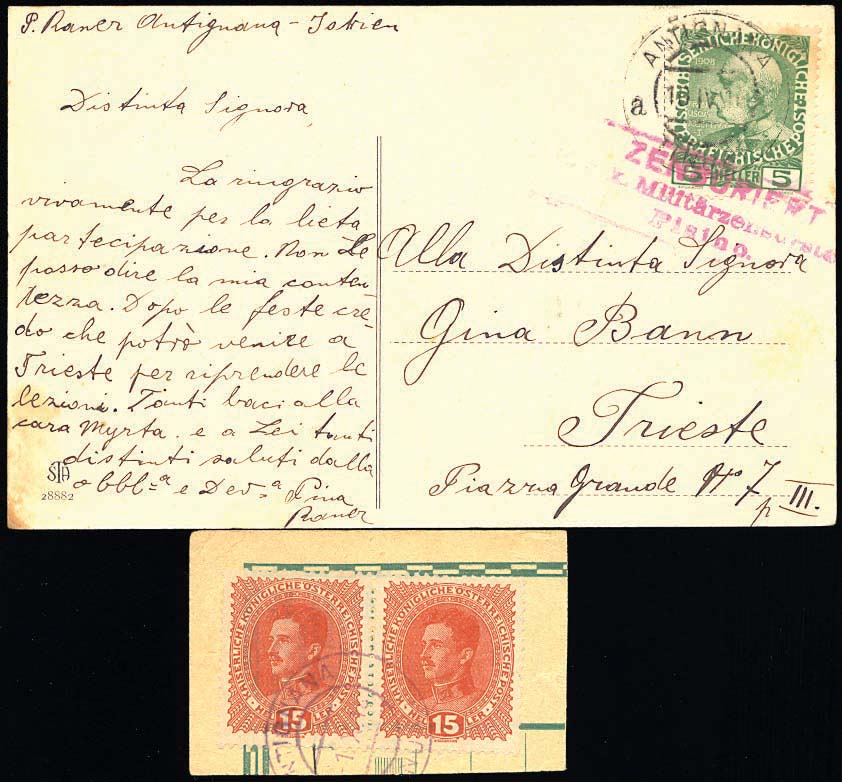 P. Raner Antignana - Istrien
Distinta Signora,
La ringrazio
vivamente per la lieta
partecipazione. Non Le
posso dire la mia conten-
tezza. Dopo le feste cre-
do che potrò venire a
Trieste per riprendere le
lezioni. Tanti baci alla
cara Myrta e a Lei tanti
distinti saluti dalla
obbl-a e Dev-a Pina
Raner
STA
28882
ANTIGNANA
a
1908
KAISERLICHE KÖNIGLICHE
ÖSTERREICHISCHE POST
5 HELLER 5
ZENSURIERT
k. Militärzensurstelle
Pisino.
Alla Distinta Signora
Gina Bann
Trieste
Piazza Grande No 7
p III.
KAISERLICHE KÖNIGLICHE ÖSTERREICHISCHE POST
15
HELLER
KAISERLICHE KÖNIGLICHE ÖSTERREICHISCHE POST
15
HELLER
ANTIGNANA